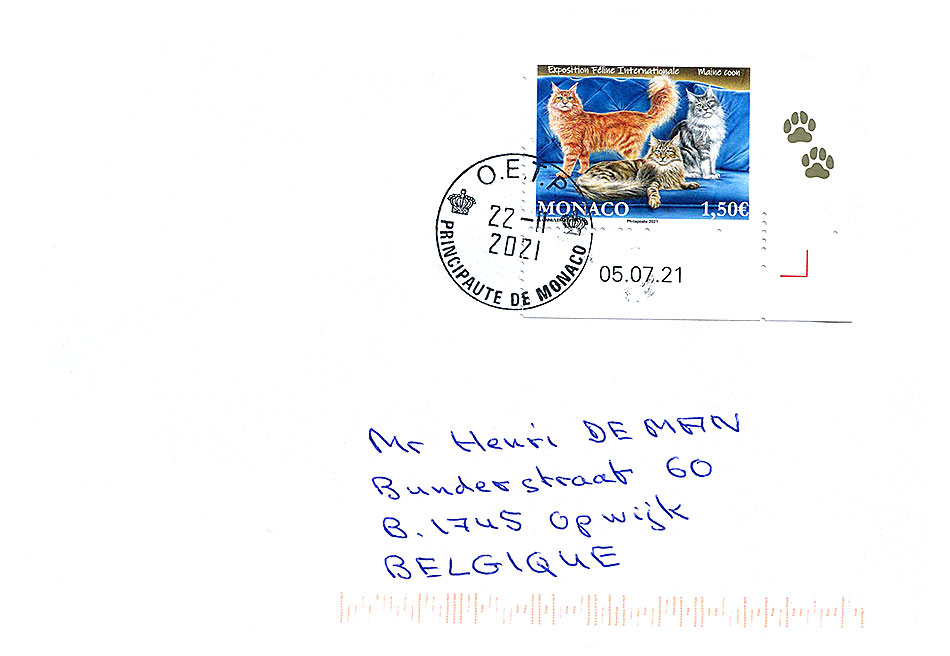 Exposition Féline Internationale Maine coon
MONACO 1,50€
Philaposte 2021
O.E.T.P.
22-11
2021
PRINCIPAUTE DE MONACO
05.07.21
Mr Henri DE MAN
Bunderstraat 60
B.1745 Opwijk
BELGIQUE